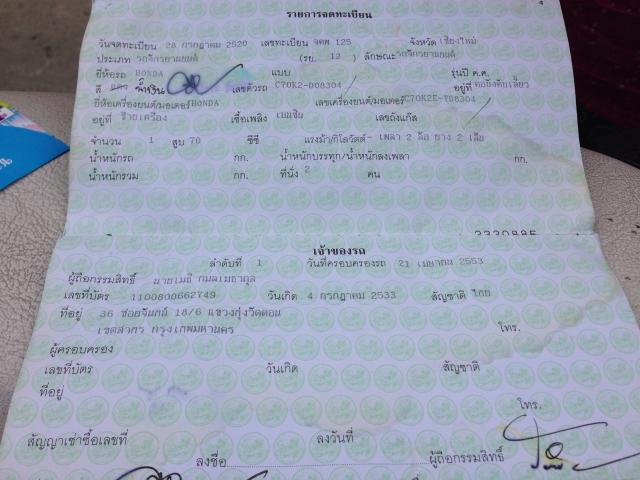 รายการจดทะเบียน
วันจดทะเบียน 28 กรกฎาคม 2520 เลขทะเบียน จคพ 125 จังหวัด เชียงใหม่
ประเภท รถจักรยานยนต์ (รย. 12 ) ลักษณะ รถจักรยานยนต์
ยี่ห้อรถ HONDA แบบ รุ่นปี ค.ศ.
สี น้ำเงิน เลขตัวรถ C70K2-D08304 อยู่ที่ คอถังคันเลี้ยว
ยี่ห้อเครื่องยนต์/มอเตอร์ HONDA เลขเครื่องยนต์/มอเตอร์ C70K2E-T08304
อยู่ที่ ซ้ายเครื่อง เชื้อเพลิง เบนซิน เลขถังแก๊ส
จำนวน 1 สูบ 70 ซีซี แรงม้า/กิโลวัตต์- เพลา 2 ล้อ ยาง 2 เส้น
น้ำหนักรถ กก. น้ำหนักบรรทุก/น้ำหนักลงเพลา กก.
น้ำหนักรวม กก. ที่นั่ง 2 คน
เจ้าของรถ
ลำดับที่ 1 วันที่ครอบครองรถ 21 เมษายน 2553
ผู้ถือกรรมสิทธิ์ นายเมธี กมลเมธากุล
เลขที่บัตร 1100800662749 วันเกิด 4 กรกฎาคม 2533 สัญชาติ ไทย
ที่อยู่ 36 ซอยจันทน์ 18/6 แขวงทุ่งวัดดอน
เขตสาทร กรุงเทพมหานคร โทร.
ผู้ครอบครอง
เลขที่บัตร วันเกิด สัญชาติ
ที่อยู่
โทร.
สัญญาเช่าซื้อเลขที่ ลงวันที่
ลงชื่อ ผู้ถือกรรมสิทธิ์